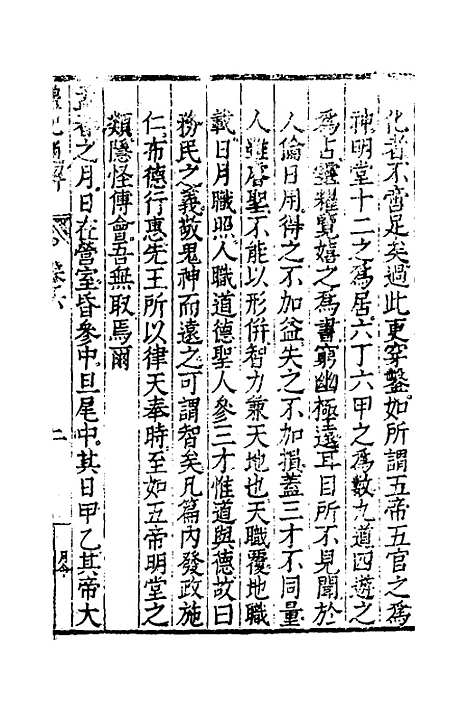 化者不啻足矣過此更穿鑿如所謂五帝五官之爲
神明堂十二之爲居六丁六甲之爲數九道四遊之
爲占靈耀覽嬉之爲書窮幽極遠耳目所不見聞於
人倫日用得之不加益失之不加損蓋三才不同量
人雖睿聖不能以形倂智力兼天地也天職覆地職
載日月職照人職道德聖人參三才惟道與德故曰
務民之義敬鬼神而遠之可謂智矣凡篇內發政施
仁布德行惠先王所以律天奉時至如五帝明堂之
類隱怪傅會吾無取焉爾
孟春之月日在營室昏參中旦尾中其日甲乙其帝大
禮記通解
卷六
二
月令